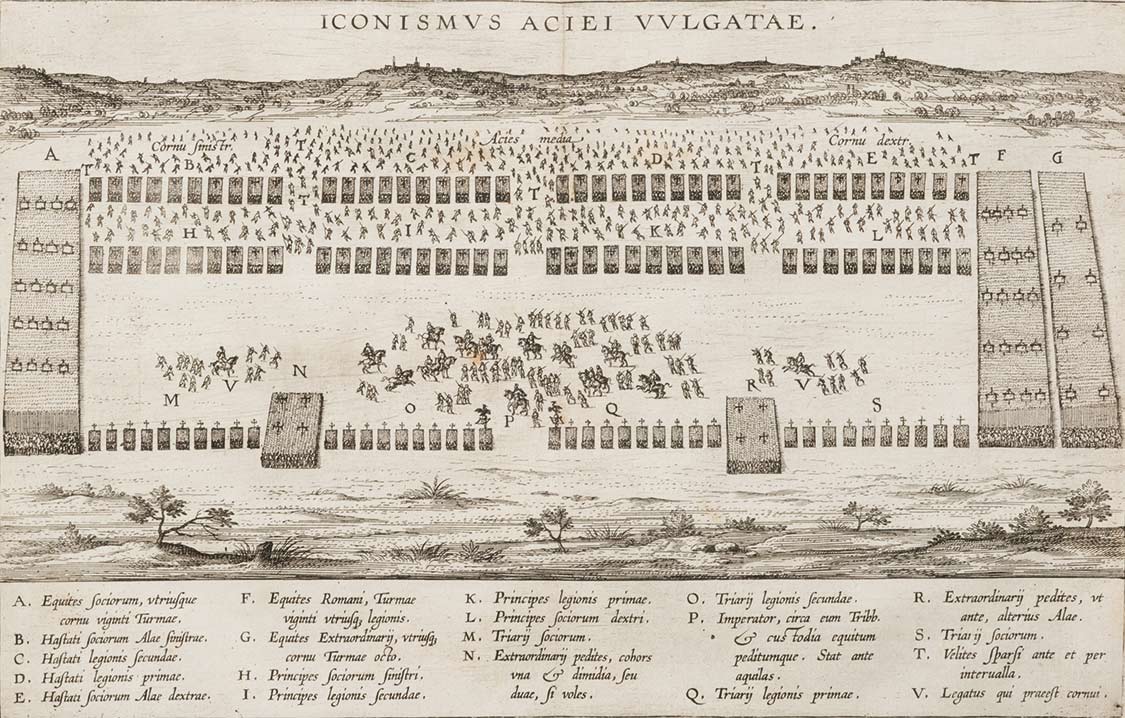 ICONISMVS ACIEI VVLGATAE.
Cornu sinistr.
Acies media
Cornu dextr.
A
T
B
T
C
D
T
E
T
F
G
T
T
H
I
K
L
M
V
N
O
P
Q
R
V
S
A. Equites sociorum, vtriusque
cornu viginti Turmae.
B. Hastati sociorum Alae sinistrae.
C. Hastati legionis secundae.
D. Hastati legionis primae.
E. Hastati sociorum Alae dextrae.
F. Equites Romani, Turmae
viginti vtriusq, legionis.
G. Equites Extraordinarij, vtriusq,
cornu Turmae octo.
H. Principes sociorum sinistri.
I. Principes legionis secundae.
K. Principes legionis primae.
L. Principes sociorum dextri.
M. Triarij sociorum.
N. Extraordinarij pedites, cohors
vna & dimidia, seu
duae, si voles.
O. Triarij legionis secundae.
P. Imperator, circa eum Tribb.
& custodia equitum
peditumque. Stat ante
aquilas.
Q. Triarij legionis primae.
R. Extraordinarij pedites, vt
ante, alterius Alae.
S. Triarij sociorum.
T. Velites sparsi ante et per
interualla.
V. Legatus qui praeest cornui.